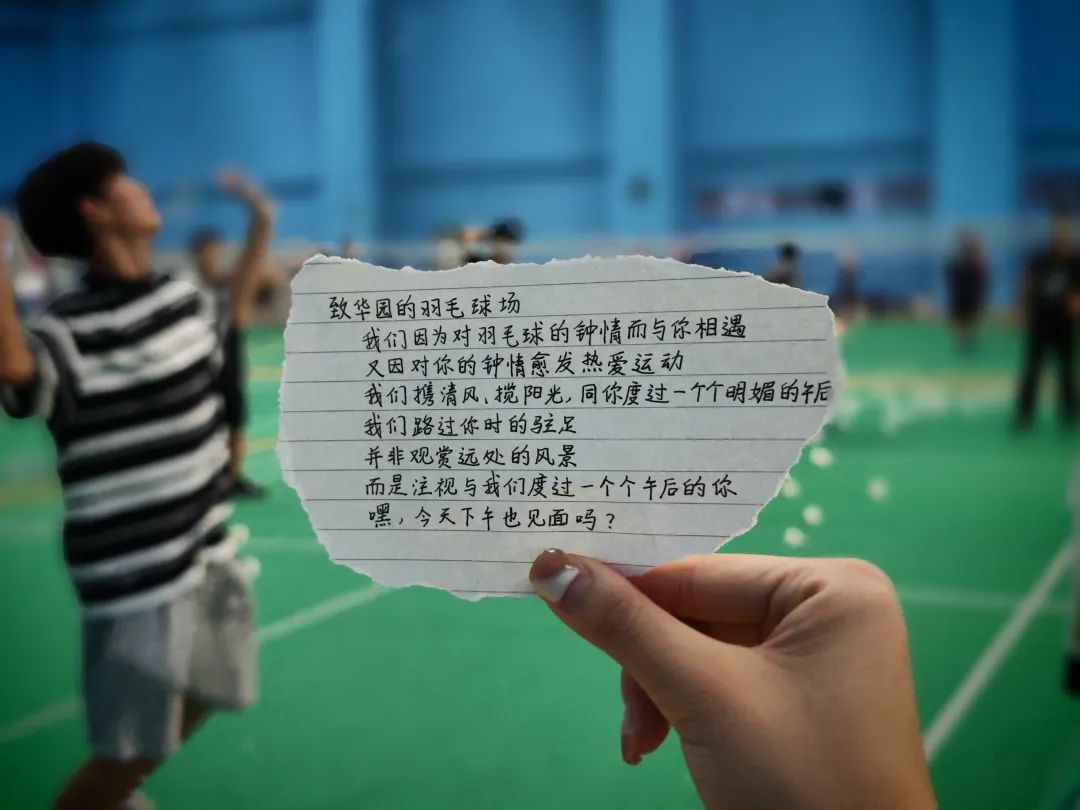 致华园的羽毛球场
我们因为对羽毛球的钟情而与你相遇
又因对你的钟情愈发热爱运动
我们携清风、揽阳光,同你度过一个个明媚的午后
我们路过你时的驻足
并非观赏远处的风景
而是注视与我们度过一个个午后的你
嘿,今天下午也见面吗?